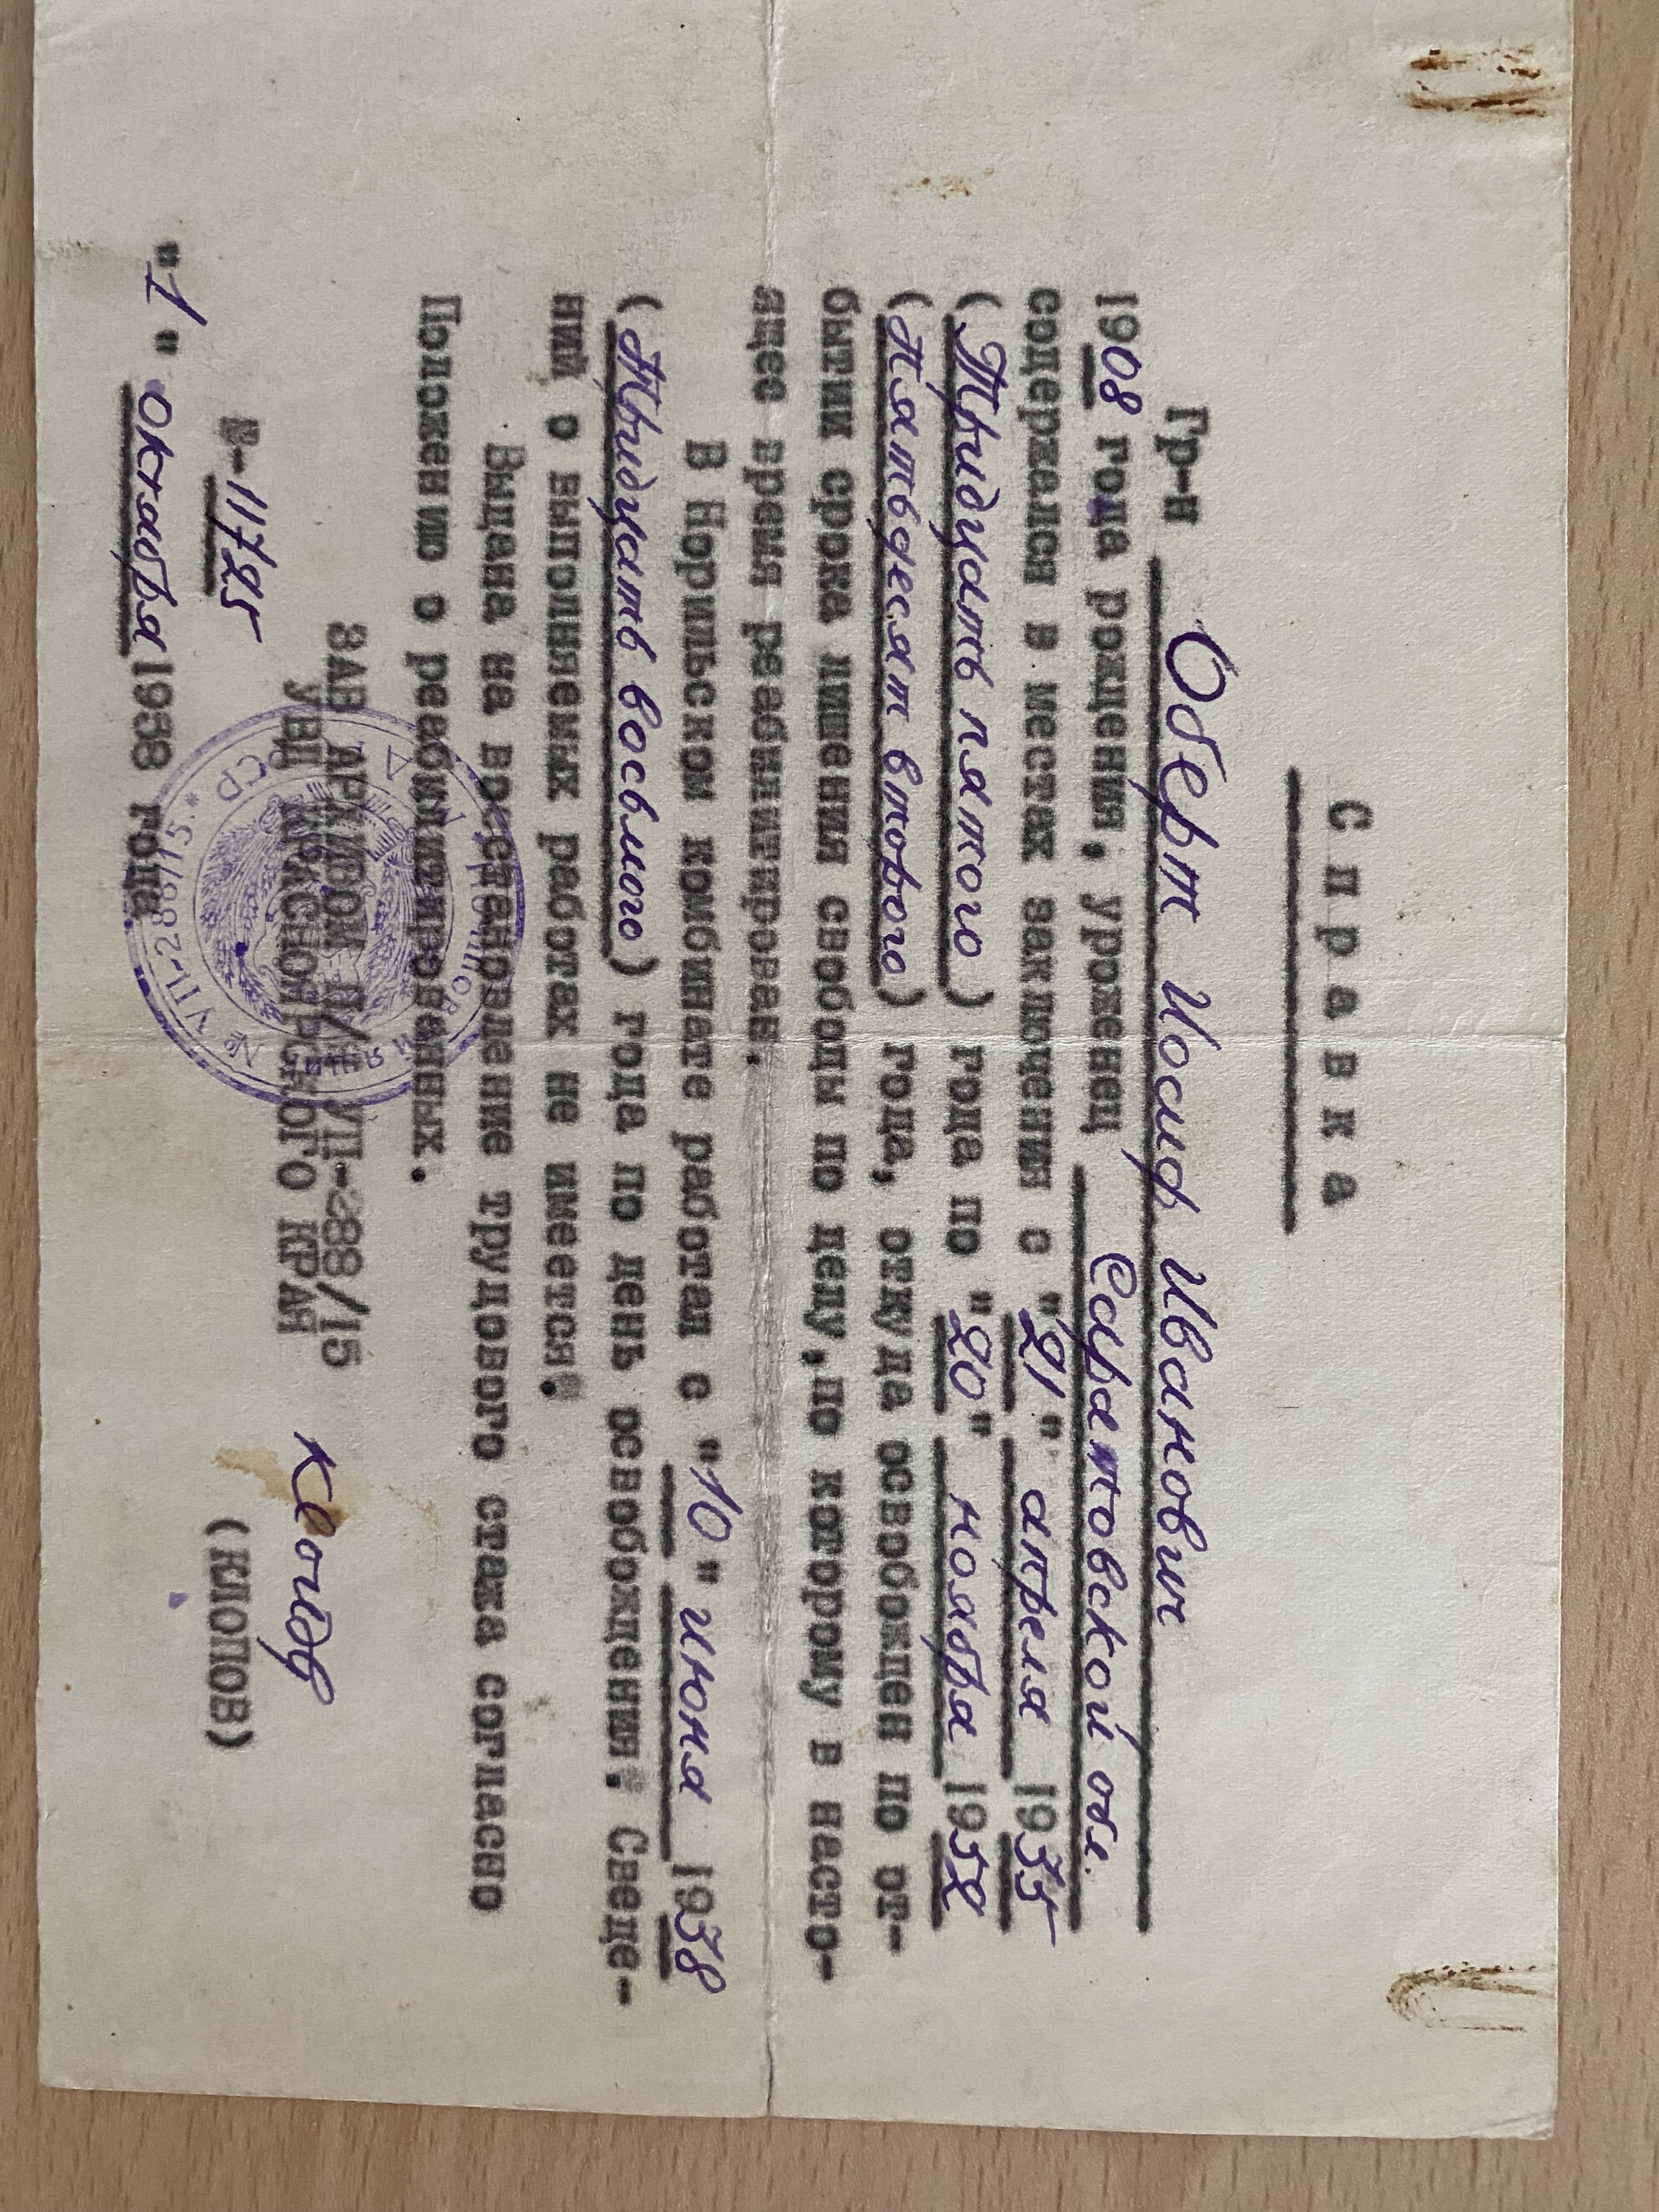 Справка
Гр-н Оберт Иосиф Иванович
1908 года рождения, уроженец Саратовской обл.
содержался в местах заключения с "21" апреля 1935
(Тридцать пятого) года по "20" ноября 1952
(Пятьдесят второго) года, откуда освобожден по от-
бытии срока лишения свободы по делу, по которому в насто-
ящее время реабилитирован.
В Норильском комбинате работал с "10" июня 1938
(Тридцать восьмого) года по день освобождения. Сведе-
ний о выполняемых работах не имеется.
Выдана на восстановление трудового стажа согласно
Положению о реабилитированных.
ЗАВ АРХИВОМ П/Я VII-288/15
УВД КРАСНОЯРСКОГО КРАЯ
(КЛОПОВ)
№-11725
"1" октября 1958 года
№ VII-288/15.*